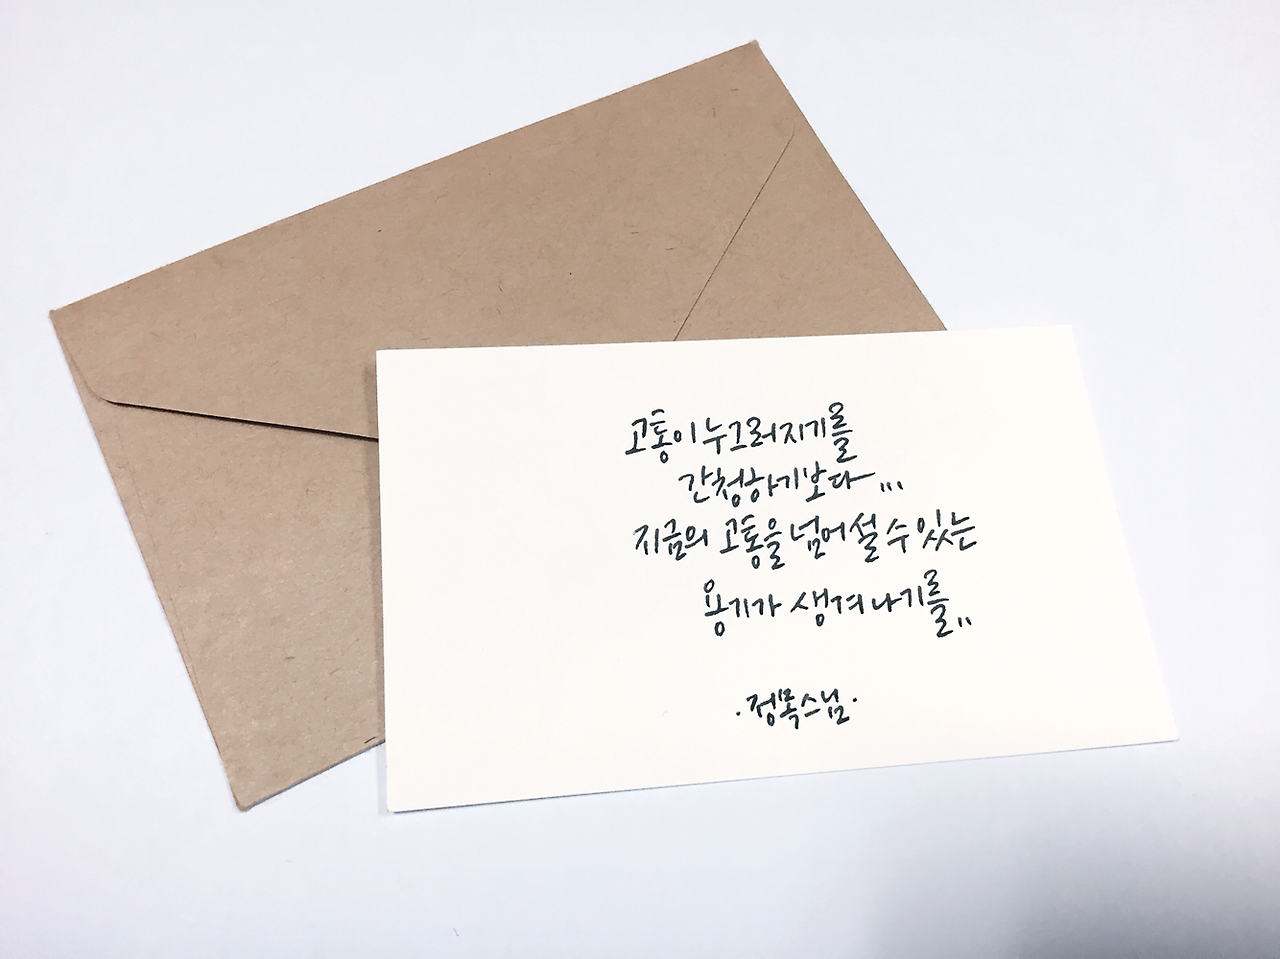 고통이 누그러지기를
간청하기보다...
지금의 고통을 넘어설 수 있는
용기가 생겨나기를..
·정목스님·